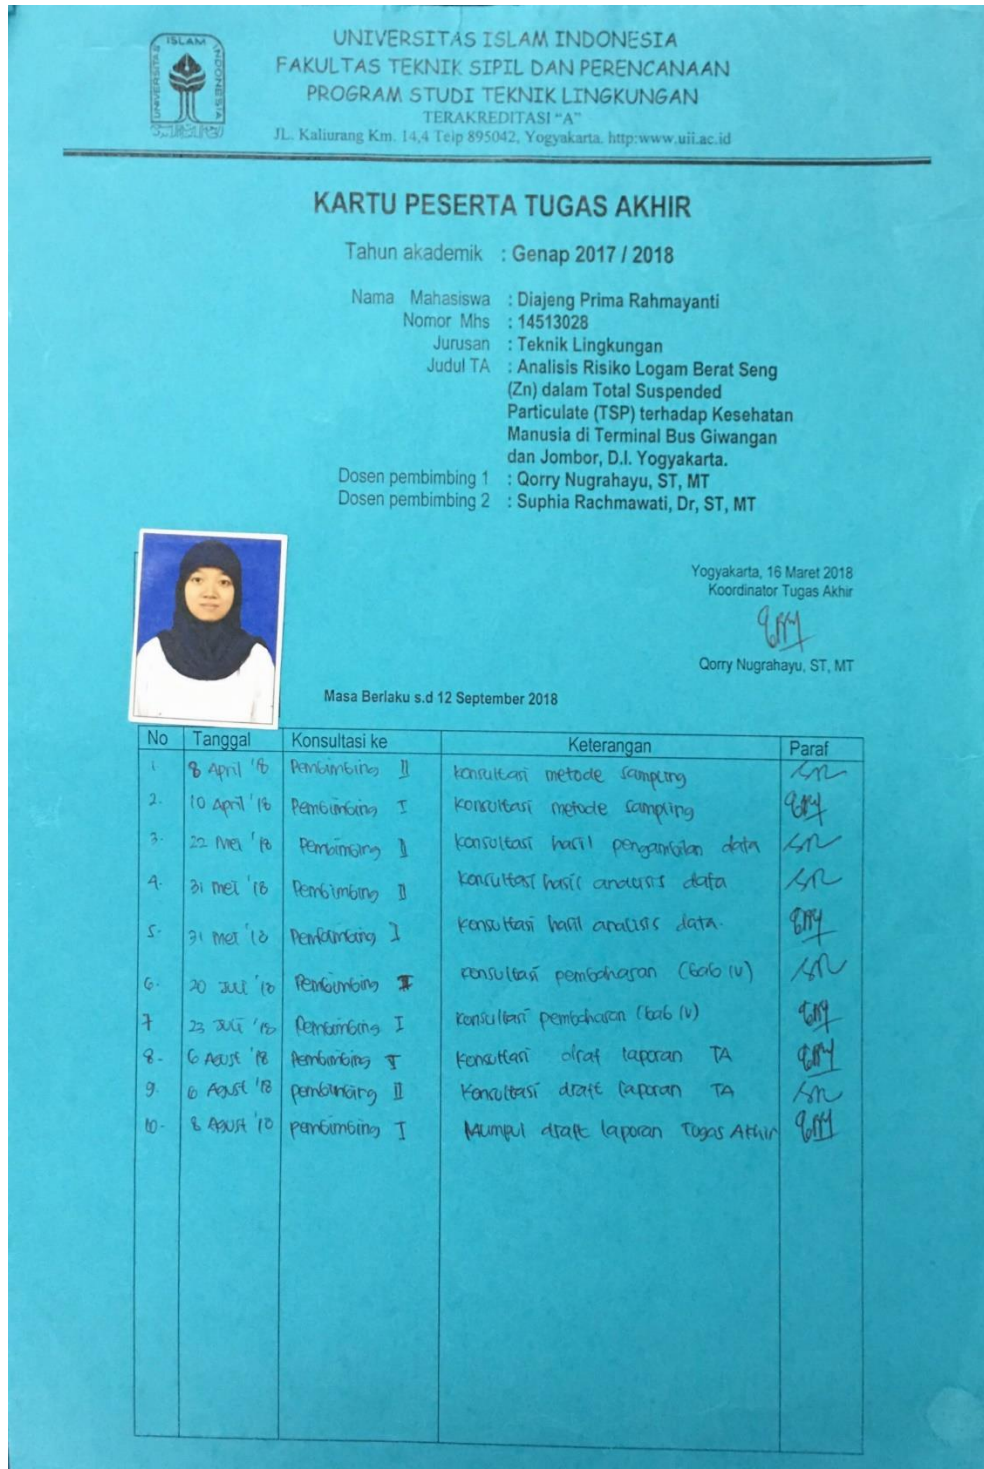 ISLAM
UNIVERSITAS
INDONESIA
UNIVERSITAS ISLAM INDONESIA
FAKULTAS TEKNIK SIPIL DAN PERENCANAAN
PROGRAM STUDI TEKNIK LINGKUNGAN
TERAKREDITASI "A"
JL. Kaliurang Km. 14,4 Telp 895042, Yogyakarta. http:www.uii.ac.id
KARTU PESERTA TUGAS AKHIR
Tahun akademik : Genap 2017 / 2018
Nama Mahasiswa : Diajeng Prima Rahmayanti
Nomor Mhs : 14513028
Jurusan : Teknik Lingkungan
Judul TA : Analisis Risiko Logam Berat Seng
(Zn) dalam Total Suspended
Particulate (TSP) terhadap Kesehatan
Manusia di Terminal Bus Giwangan
dan Jombor, D.I. Yogyakarta.
Dosen pembimbing 1 : Qorry Nugrahayu, ST, MT
Dosen pembimbing 2 : Suphia Rachmawati, Dr, ST, MT
Yogyakarta, 16 Maret 2018
Koordinator Tugas Akhir
Qorry Nugrahayu, ST, MT
Masa Berlaku s.d 12 September 2018
No Tanggal Konsultasi ke Keterangan Paraf
1 8 April '18 Pembimbing II konsultasi metode sampling
2. 10 April '18 Pembimbing I konsultasi metode sampling
3. 22 Mei '18 Pembimbing II konsultasi hasil pengambilan data
4. 31 mei '18 Pembimbing II konsultasi hasil analisis data
5. 31 mei '18 Pembimbing I konsultasi hasil analisis data.
6. 20 Juli '18 Pembimbing II konsultasi pembahasan (bab IV)
7 23 Juli '18 Pembimbing I konsultasi pembahasan (bab IV)
8. 6 Agust '18 Pembimbing I konsultasi draf laporan TA
9. 6 Agust '18 pembimbing II konsultasi draft laporan TA
10. 8 Agust '18 pembimbing I Mumpul draft laporan Tugas Akhir